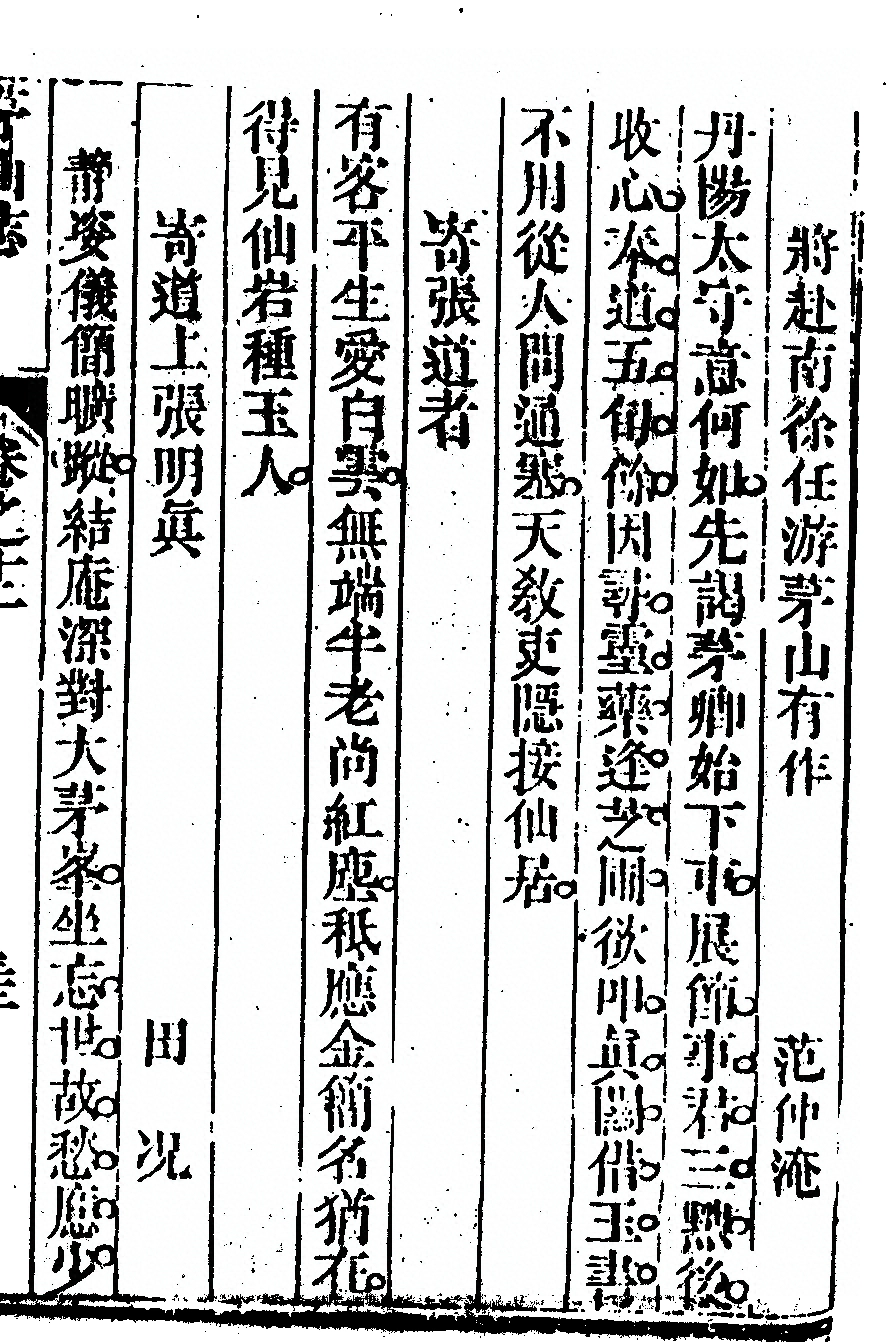 將赴南徐任游茅山有作 范仲淹
丹陽太守意何如先謁茅卿始下車展節事君三黜後
收心奉道五旬餘因尋靈藥逢芝圃欲叩真關借玉書
不用從人問通塞天教吏隱接仙居
寄張道者
有客平生愛白雲無端半老尚紅塵秪應金簡名猶在
得見仙岩種玉人
寄道士張明眞 田况
靜姿儀僴曠蹤結庵深對大茅峯坐忘世故愁應少